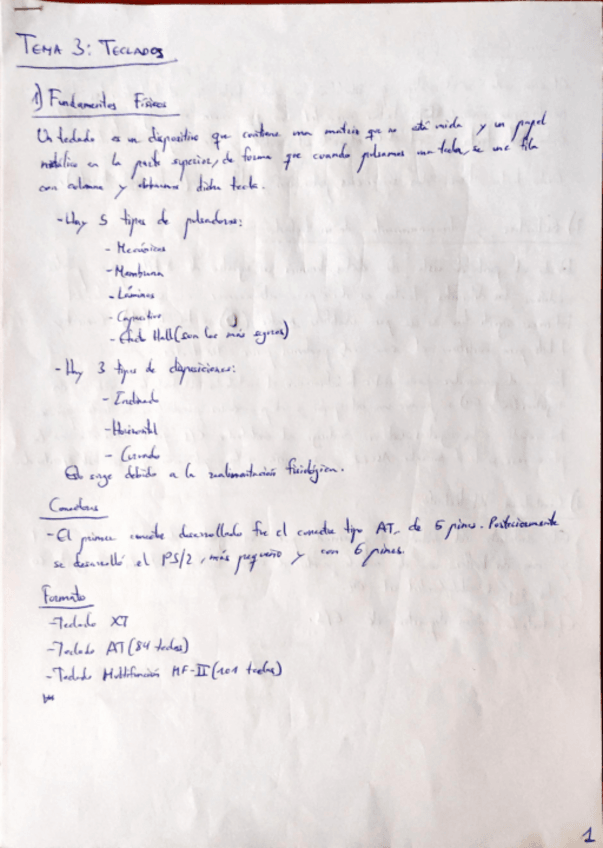 TEMA 3: TECLADOS
1) Fundamentos Físicos
Un teclado es un dispositivo que contiene una matriz que no está unida y un papel
metálico en la parte superior, de forma que cuando pulsamos una tecla, se une fila
con columna y obtenemos dicha tecla.
- Hay 5 tipos de pulsadores:
- Mecánicos
- Membrana
- Láminas
- Capacitivo
- Efecto Hall (son los más seguros)
- Hay 3 tipos de disposiciones:
- Inclinado
- Horizontal
- Curvado
surge debido a la fisiológica.
Conectores
- El primer conector desarrollado fue el conector tipo AT, de 5 pines. Posteriormente
se desarrolló el PS/2, más pequeño y con 6 pines.
Formato
- Teclado XT
- Teclado AT (84 teclas)
- Teclado Multifunción MF-II (101 teclas)
1